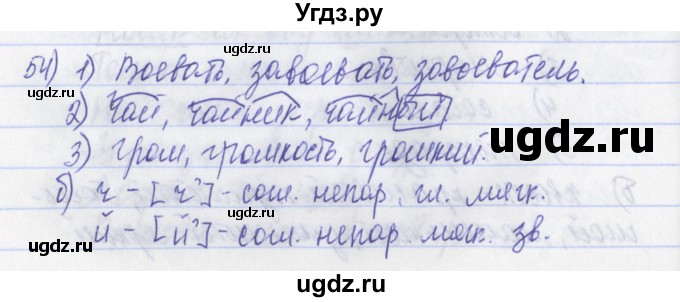 Угдз.ру
54) 1) Воевать, завоевать, завоеватель.
2) Чай, чайник, чайный
3) Гром, громкость, громкий.
б) ч - [ч'] - согл. непар. гл. мягк.
й - [й'] - согл. непар. мягк. зв.
ugdz.ru
ugdz.ru
ugdz.ru
ugdz.ru
ugdz.ru
ugdz.ru
ugdz.ru
ugdz.ru